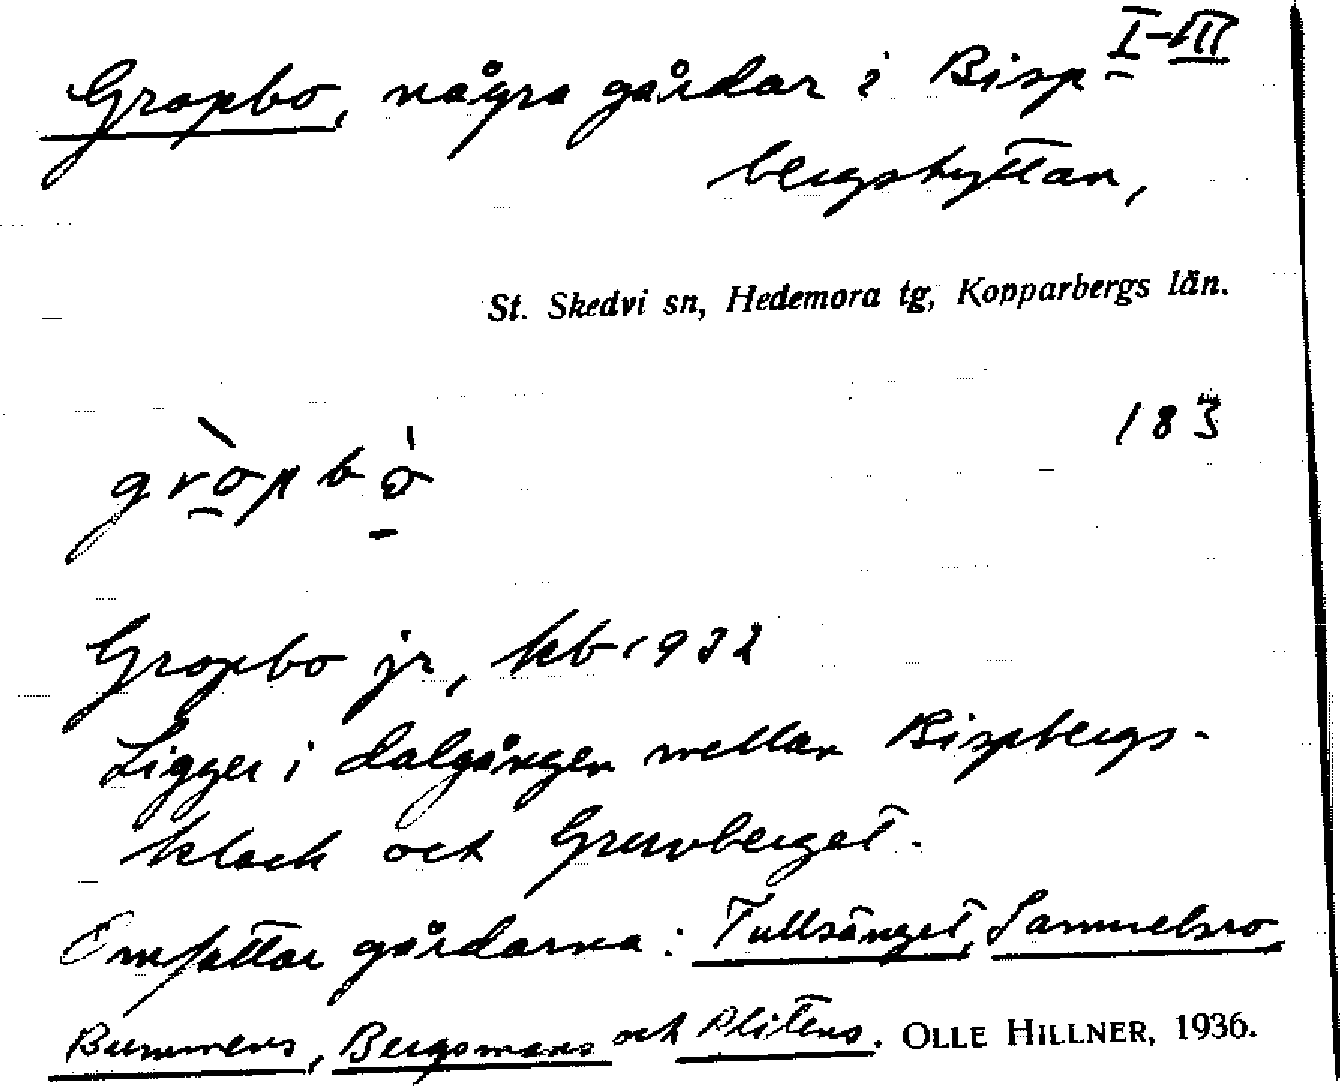 I-III
Gropbo, några gårdar i Bisp-
bergshyttan,
St. Skedvi sn, Hedemora tg, Kopparbergs län.
183
gròpbó
Gropbo jr, kb 1932
Ligger i dalgången mellan Bispbergs-
klack och Gruvberget.
Omfattar gårdarna: Tullsänget, Samuelsro,
Bummens, Bergsmans och Plitens. OLLE HILLNER, 1936.